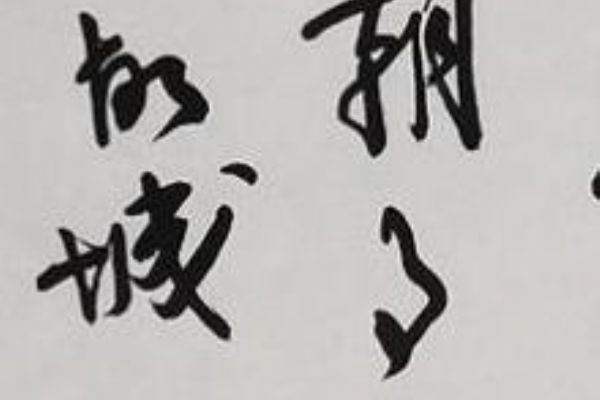 朝了
故城